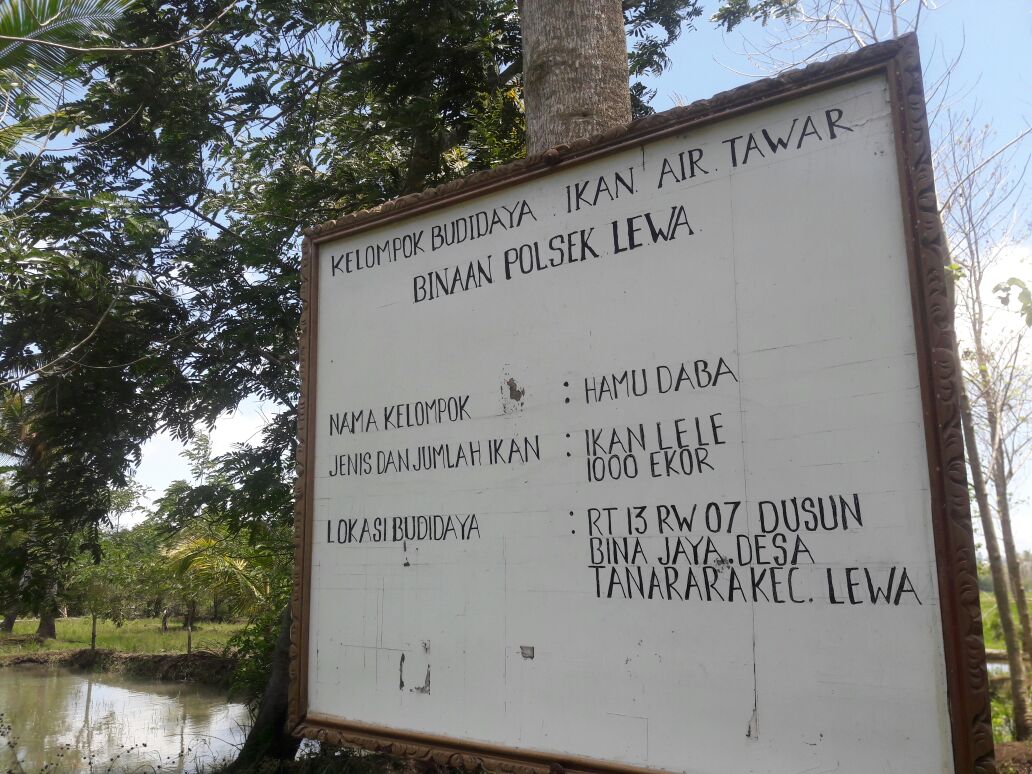 KELOMPOK BUDIDAYA. IKAN. AIR. TAWAR
BINAAN POLSEK LEWA.
NAMA KELOMPOK : HAMU DABA
JENIS DAN JUMLAH IKAN : IKAN LELE
1000 EKOR
LOKASI BUDIDAYA : RT 13 RW 07 DUSUN
BINA JAYA. DESA
TANARARA KEC. LEWA